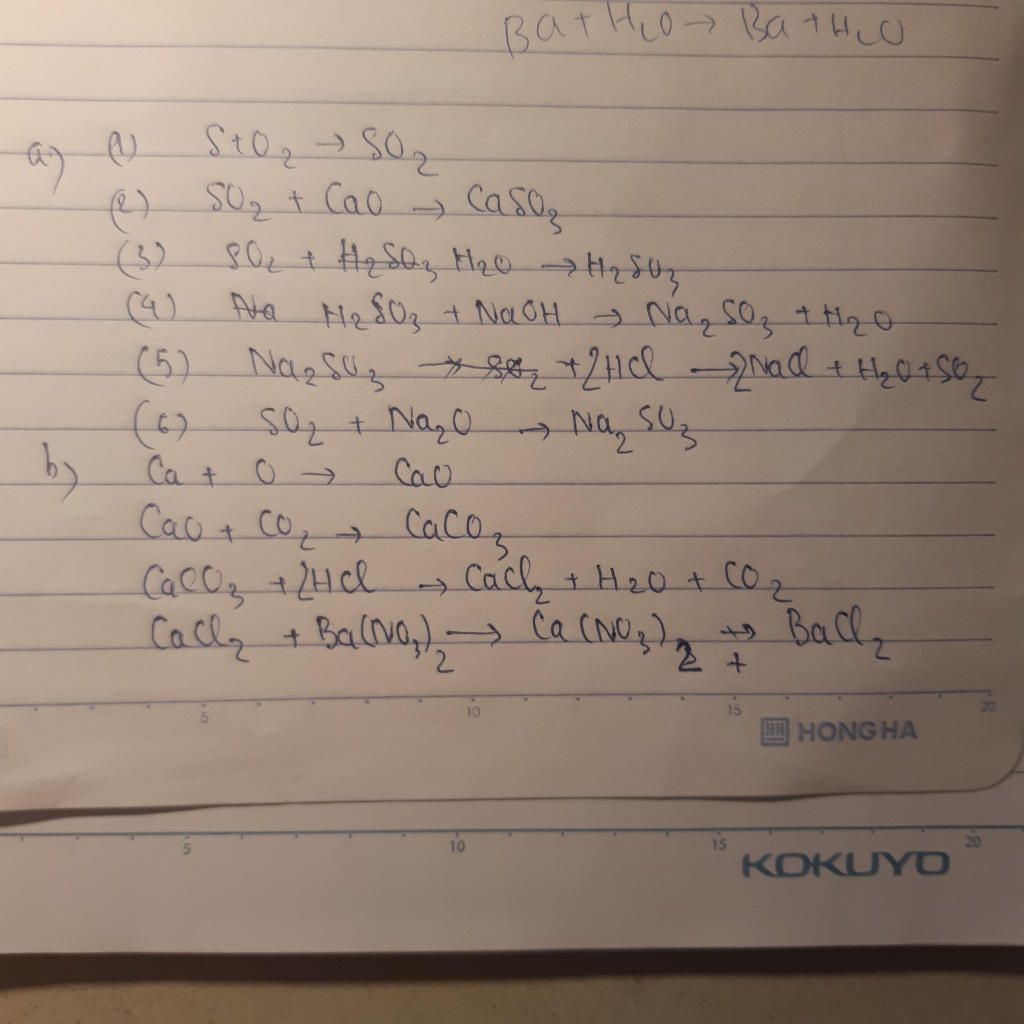 Ba + H2O → Ba + H2O
a) (1) S + O2 → SO2
(2) SO2 + CaO → CaSO3
(3) SO2 + H2SO3 H2O → H2SO3
(4) Na H2SO3 + NaOH → Na2SO3 + H2O
(5) Na2SO3 → SO2 + 2HCl → 2NaCl + H2O + SO2
(6) SO2 + Na2O → Na2SO3
b) Ca + O → CaO
CaO + CO2 → CaCO3
CaCO3 + 2HCl → CaCl2 + H2O + CO2
CaCl2 + Ba(NO3)2 → Ca(NO3)2 + BaCl2
5 10 15 20
HONG HA
5 10 15 20
KOKUYO